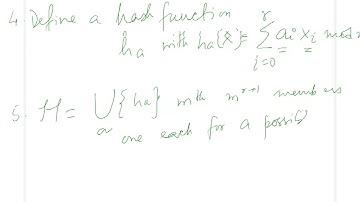 4. Define a hash function
h_a with h_a(x) = ∑_{i=0}^{r} a_i x_i mod
5. H = ⋃_a {h_a} with m^{r+1} members
one each for a